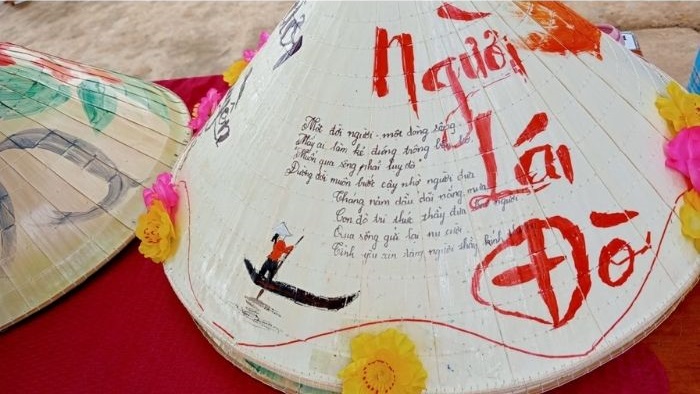 Người
Lái
Đò
Một đời người - một dòng sông
Mấy ai làm kẻ đứng trông bến bờ
"Muốn qua sông phải lụy đò"
Đường đời muôn bước cậy nhờ người đưa
Tháng năm dầu dãi nắng mưa
Con đò tri thức thầy đưa bao người
Qua sông gửi lại nụ cười
Tình yêu xin tặng người thầy kính